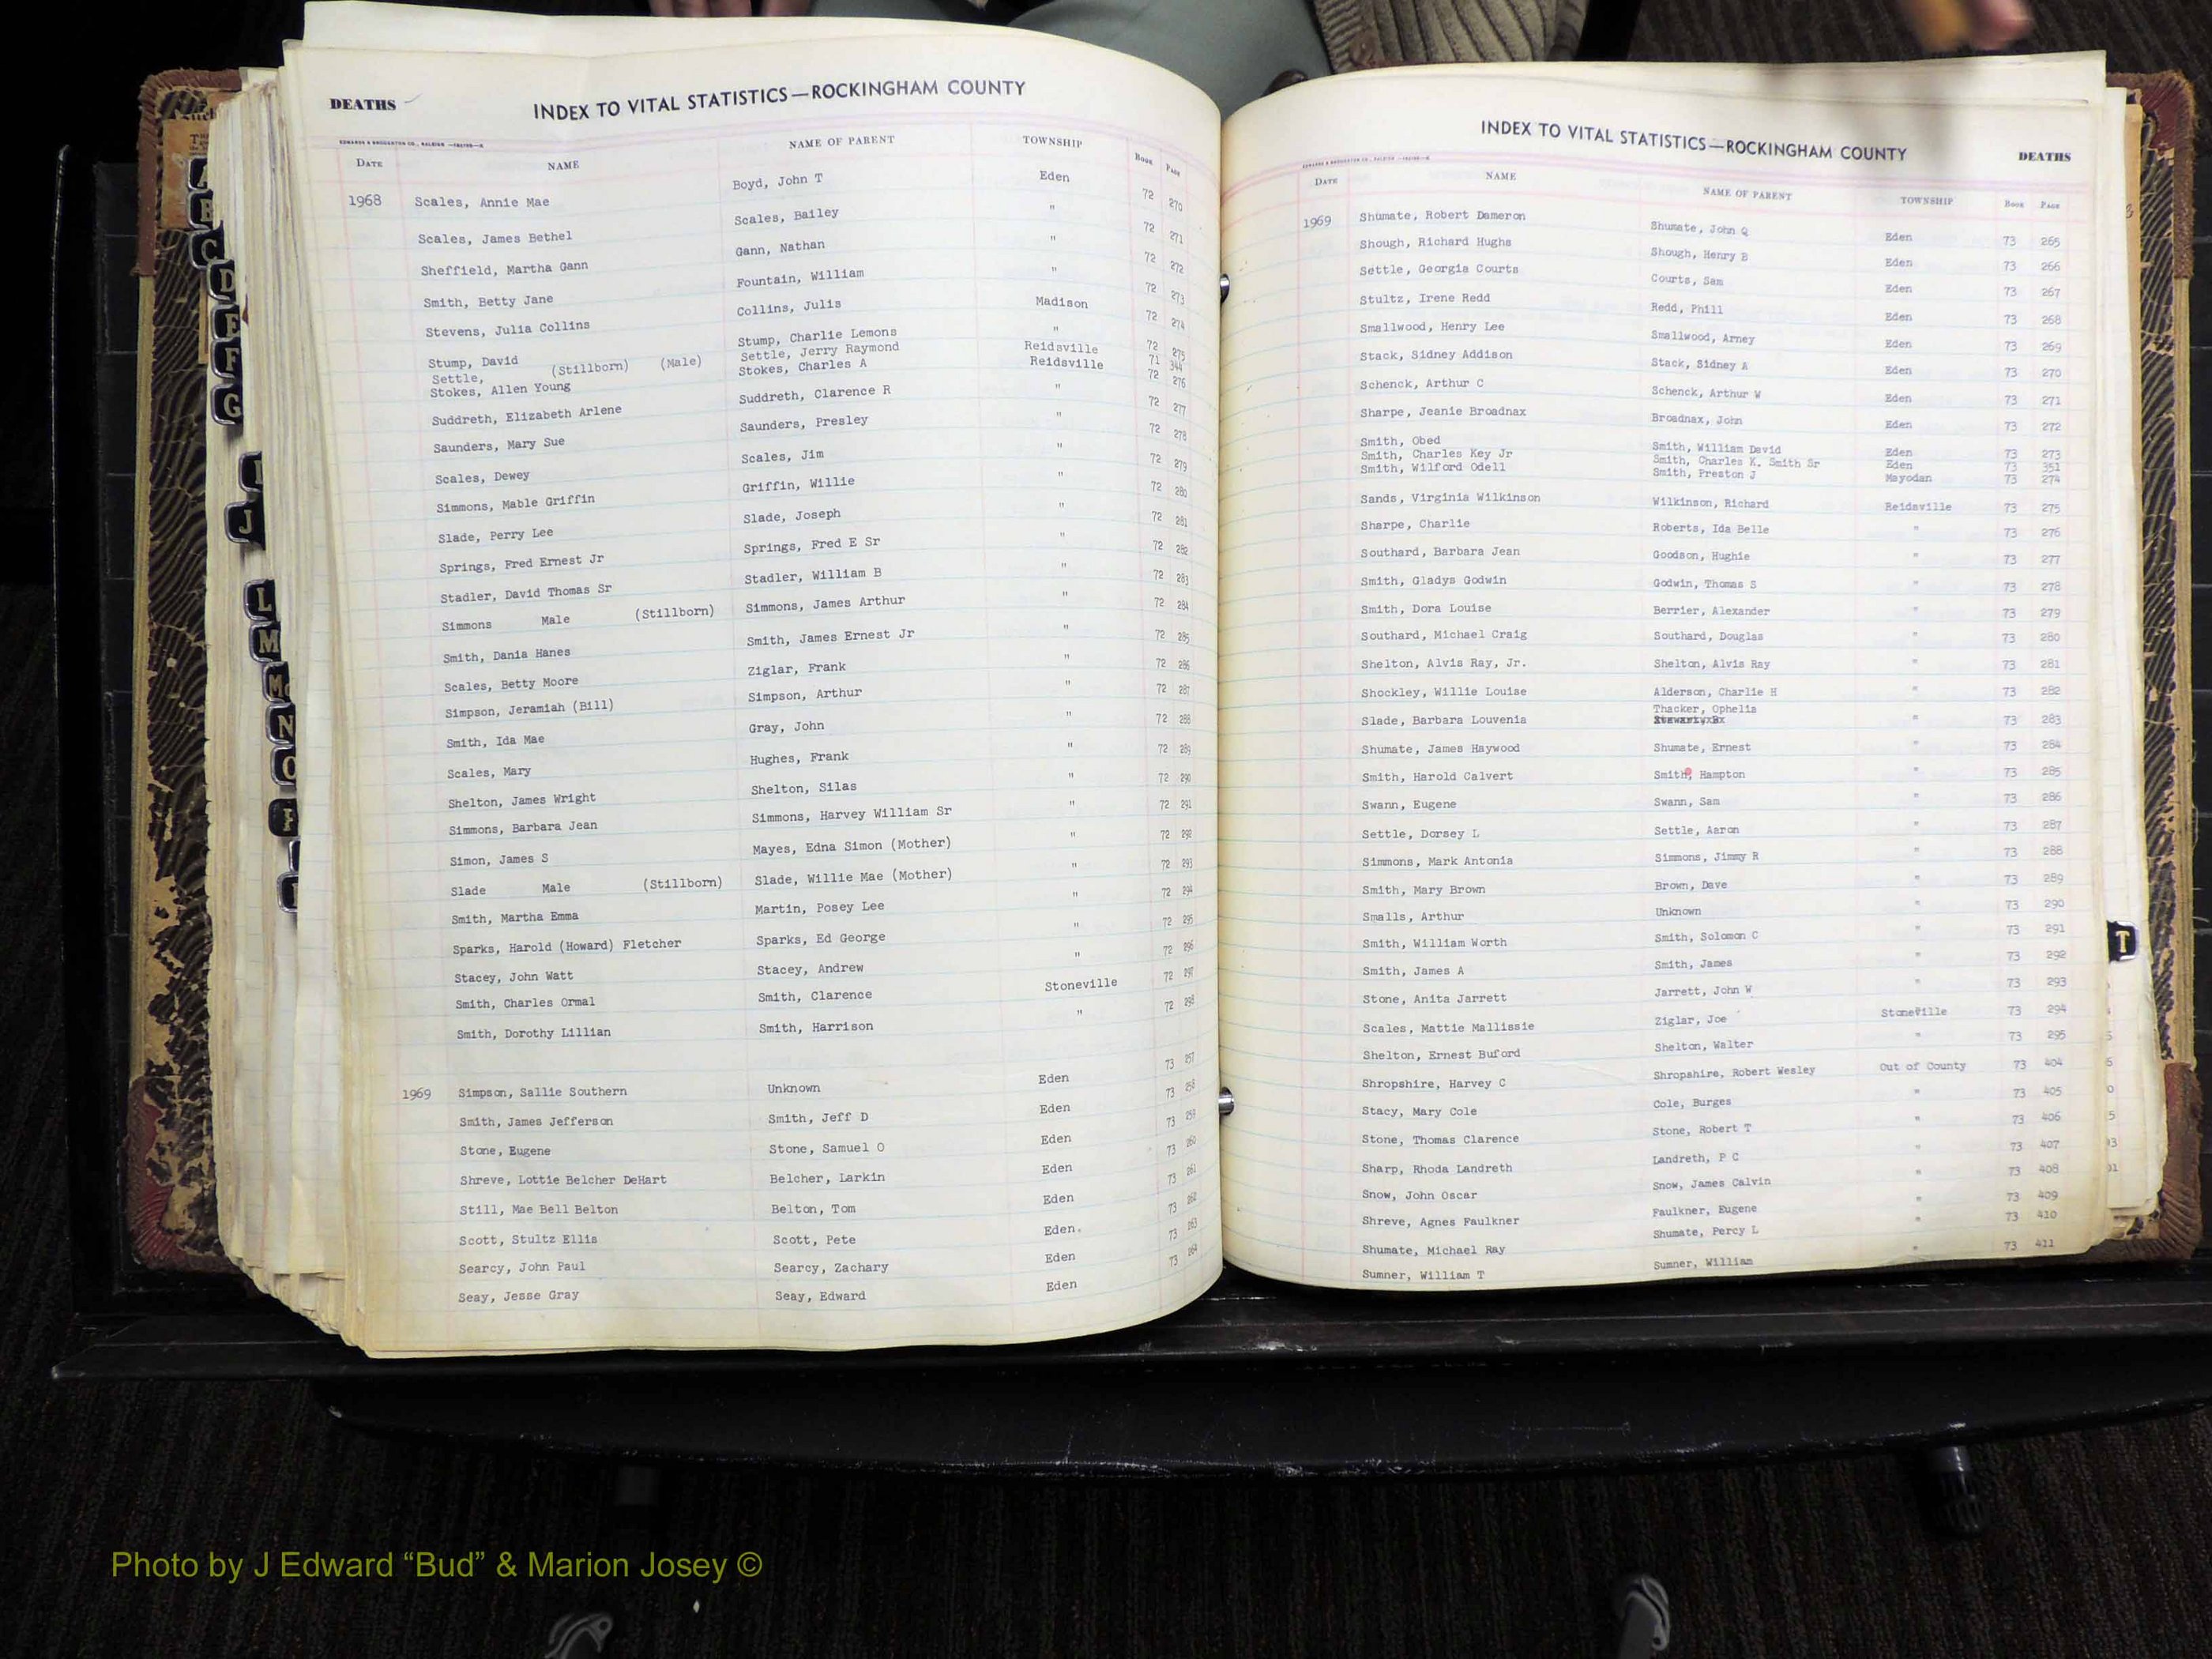 DEATHS
INDEX TO VITAL STATISTICS—ROCKINGHAM COUNTY
DATE NAME NAME OF PARENT TOWNSHIP Book Page
1968 Scales, Annie Mae Boyd, John T Eden 72 270
Scales, James Bethel Scales, Bailey " 72 271
Sheffield, Martha Gann Gann, Nathan " 72 272
Smith, Betty Jane Fountain, William " 72 273
Stevens, Julia Collins Collins, Julis Madison 72 274
Stump, David Stump, Charlie Lemons " 72 275
Settle, (Stillborn) (Male) Settle, Jerry Raymond Reidsville 71 344
Stokes, Allen Young Stokes, Charles A Reidsville 72 276
Suddreth, Elizabeth Arlene Suddreth, Clarence R " 72 277
Saunders, Mary Sue Saunders, Presley " 72 278
Scales, Dewey Scales, Jim " 72 279
Simmons, Mable Griffin Griffin, Willie " 72 280
Slade, Perry Lee Slade, Joseph " 72 281
Springs, Fred Ernest Jr Springs, Fred E Sr " 72 282
Stadler, David Thomas Sr Stadler, William B " 72 283
Simmons Male (Stillborn) Simmons, James Arthur " 72 284
Smith, Dania Hanes Smith, James Ernest Jr " 72 285
Scales, Betty Moore Ziglar, Frank " 72 286
Simpson, Jeramiah (Bill) Simpson, Arthur " 72 287
Smith, Ida Mae Gray, John " 72 288
Scales, Mary Hughes, Frank " 72 289
Shelton, James Wright Shelton, Silas " 72 290
Simmons, Barbara Jean Simmons, Harvey William Sr " 72 291
Simon, James S Mayes, Edna Simon (Mother) " 72 292
Slade Male (Stillborn) Slade, Willie Mae (Mother) " 72 293
Smith, Martha Emma Martin, Posey Lee " 72 294
Sparks, Harold (Howard) Fletcher Sparks, Ed George " 72 295
Stacey, John Watt Stacey, Andrew " 72 296
Smith, Charles Ormal Smith, Clarence Stoneville 72 297
Smith, Dorothy Lillian Smith, Harrison " 72 298
1969 Simpson, Sallie Southern Unknown Eden 73 257
Smith, James Jefferson Smith, Jeff D Eden 73 258
Stone, Eugene Stone, Samuel O Eden 73 259
Shreve, Lottie Belcher DeHart Belcher, Larkin Eden 73 260
Still, Mae Bell Belton Belton, Tom Eden 73 261
Scott, Stultz Ellis Scott, Pete Eden. 73 262
Searcy, John Paul Searcy, Zachary Eden 73 263
Seay, Jesse Gray Seay, Edward Eden 73 264
INDEX TO VITAL STATISTICS—ROCKINGHAM COUNTY
DEATHS
DATE NAME NAME OF PARENT TOWNSHIP Book Page
1969 Shumate, Robert Dameron Shumate, John Q Eden 73 265
Shough, Richard Hughs Shough, Henry B Eden 73 266
Settle, Georgia Courts Courts, Sam Eden 73 267
Stultz, Irene Redd Redd, Phill Eden 73 268
Smallwood, Henry Lee Smallwood, Arney Eden 73 269
Stack, Sidney Addison Stack, Sidney A Eden 73 270
Schenck, Arthur C Schenck, Arthur W Eden 73 271
Sharpe, Jeanie Broadnax Broadnax, John Eden 73 272
Smith, Obed Smith, William David Eden 73 273
Smith, Charles Key Jr Smith, Charles K. Smith Sr Eden 73 351
Smith, Wilford Odell Smith, Preston J Mayodan 73 274
Sands, Virginia Wilkinson Wilkinson, Richard Reidsville 73 275
Sharpe, Charlie Roberts, Ida Belle " 73 276
Southard, Barbara Jean Goodson, Hughie " 73 277
Smith, Gladys Godwin Godwin, Thomas S " 73 278
Smith, Dora Louise Berrier, Alexander " 73 279
Southard, Michael Craig Southard, Douglas " 73 280
Shelton, Alvis Ray, Jr. Shelton, Alvis Ray " 73 281
Shockley, Willie Louise Alderson, Charlie H " 73 282
Slade, Barbara Louvenia Thacker, Ophelia " 73 283
Shumate, James Haywood Shumate, Ernest " 73 284
Smith, Harold Calvert Smith, Hampton " 73 285
Swann, Eugene Swann, Sam " 73 286
Settle, Dorsey L Settle, Aaron " 73 287
Simmons, Mark Antonia Simmons, Jimmy R " 73 288
Smith, Mary Brown Brown, Dave " 73 289
Smalls, Arthur Unknown " 73 290
Smith, William Worth Smith, Solomon C " 73 291
Smith, James A Smith, James " 73 292
Stone, Anita Jarrett Jarrett, John W " 73 293
Scales, Mattie Mallissie Ziglar, Joe Stoneville 73 294
Shelton, Ernest Buford Shelton, Walter " 73 295
Shropshire, Harvey C Shropshire, Robert Wesley Out of County 73 404
Stacy, Mary Cole Cole, Burges " 73 405
Stone, Thomas Clarence Stone, Robert T " 73 406
Sharp, Rhoda Landreth Landreth, P C " 73 407
Snow, John Oscar Snow, James Calvin " 73 408
Shreve, Agnes Faulkner Faulkner, Eugene " 73 409
Shumate, Michael Ray Shumate, Percy L " 73 410
Sumner, William T Sumner, William " 73 411
C
D
E
F
G
I
J
L
M
Mc
N
O
P
T
Photo by J Edward “Bud” & Marion Josey ©